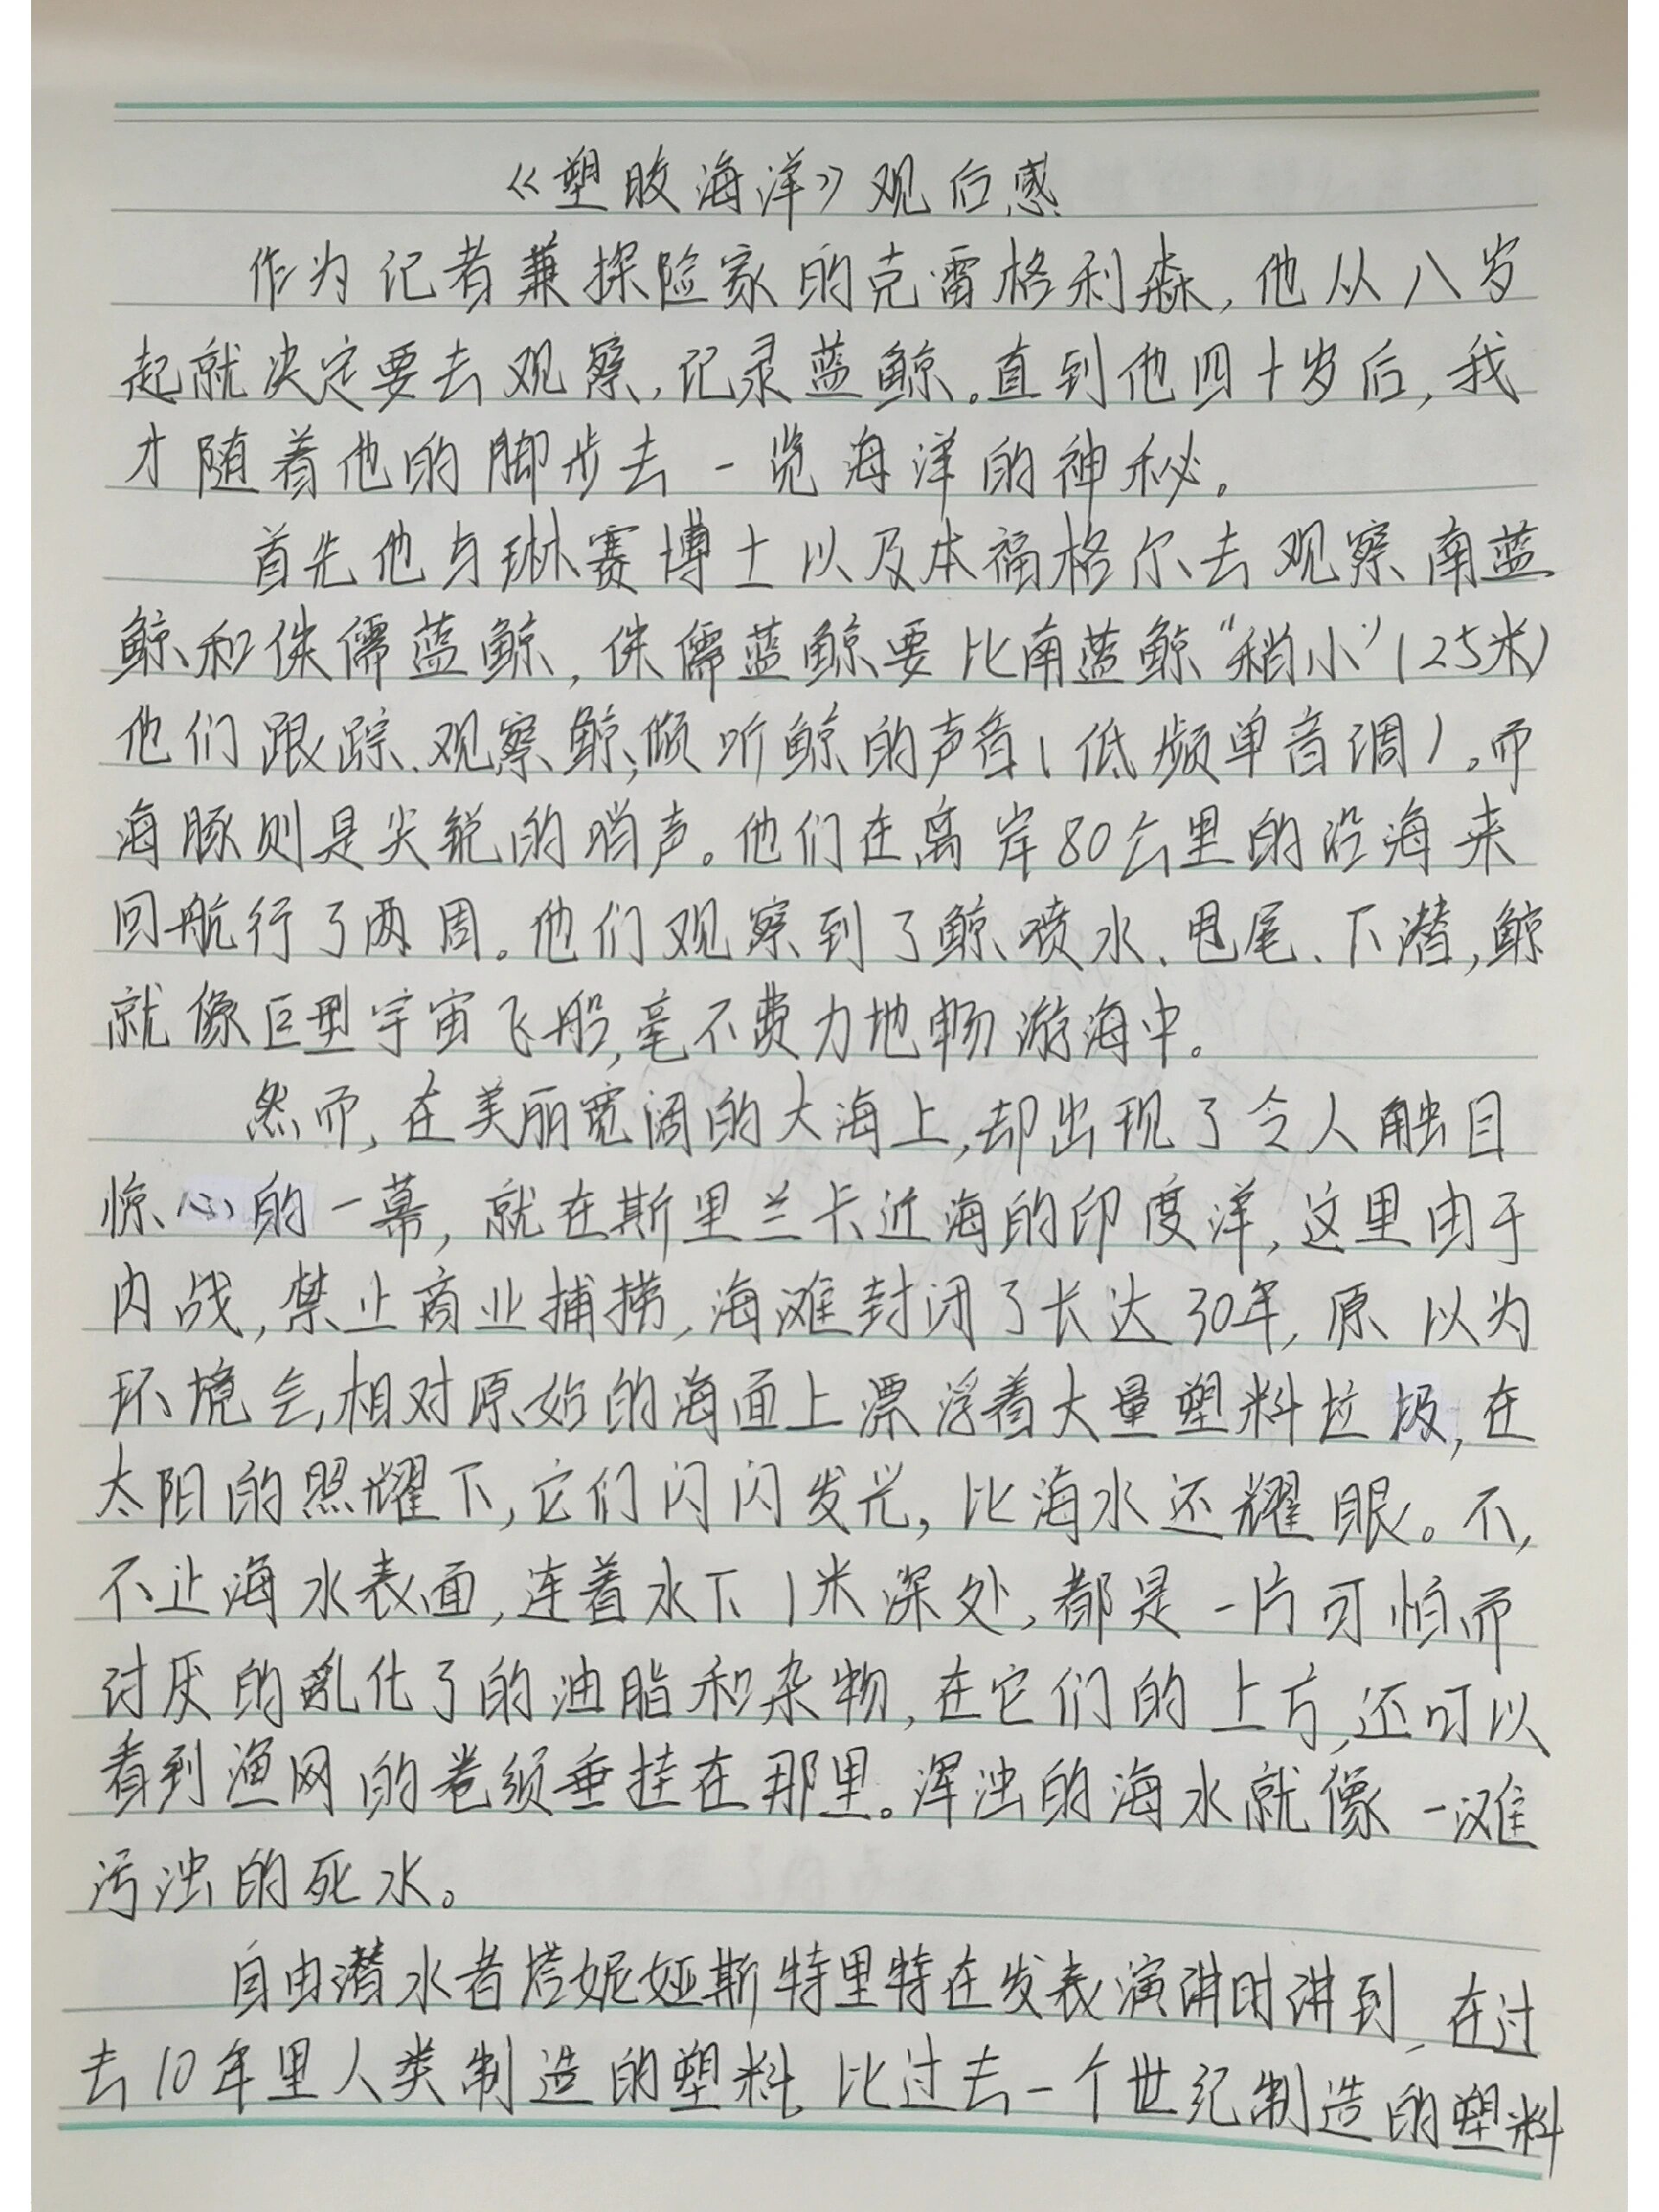 《塑胶海洋》观后感
作为记者兼探险家的克雷格利森,他从八岁
起就决定要去观察,记录蓝鲸。直到他四十岁后,我
才随着他的脚步去一览海洋的神秘。
首先他与琳赛博士以及本福格尔去观察南蓝
鲸和侏儒蓝鲸,侏儒蓝鲸要比南蓝鲸“稍小”(25米)
他们跟踪、观察鲸,倾听鲸的声音(低频单音调)。而
海豚则是尖锐的哨声。他们在离岸80公里的沿海来
回航行了两周。他们观察到了鲸喷水、甩尾、下潜,鲸
就像巨型宇宙飞船,毫不费力地畅游海中。
然而,在美丽宽阔的大海上,却出现了令人触目
惊心的一幕,就在斯里兰卡近海的印度洋,这里由于
内战,禁止商业捕捞,海滩封闭了长达30年,原以为
环境会,相对原始的海面上漂浮着大量塑料垃圾,在
太阳的照耀下,它们闪闪发光,比海水还耀眼。不,
不止海水表面,连着水下1米深处,都是一片可怕而
讨厌的乱化了的油脂和杂物,在它们的上方,还可以
看到渔网的卷须垂挂在那里。浑浊的海水就像一滩
污浊的死水。
自由潜水者塔妮娅斯特里特在发表演讲时讲到,在过
去10年里人类制造的塑料,比过去一个世纪制造的塑料